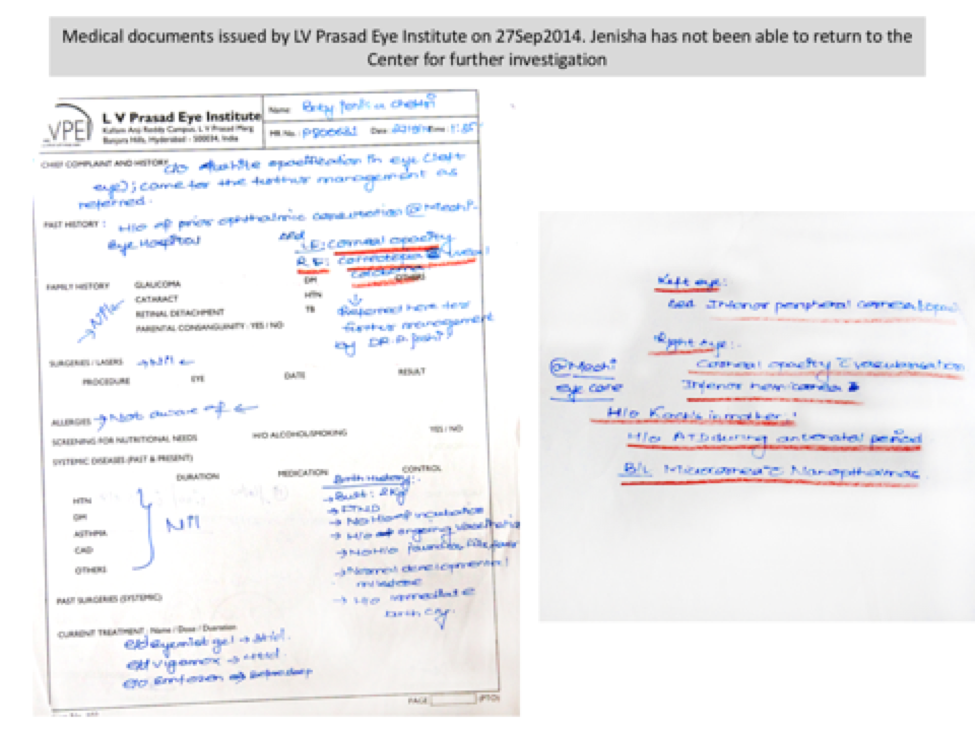 Medical documents issued by LV Prasad Eye Institute on 27Sep2014. Jenisha has not been able to return to the
Center for further investigation
LVPEI
L V Prasad Eye Institute
Kallam Anji Reddy Campus, L V Prasad Marg
Banjara Hills, Hyderabad - 500034, India
Name: Baby
MR No.: Date: Time:
CHIEF COMPLAINT AND HISTORY c/o white opacification in eye (left
eye); came for the further management as
referred.
PAST HISTORY: H/o of prior ophthalmic consultation @Mechi
Eye Hospital
LE: Corneal opacity
RE:
FAMILY HISTORY
GLAUCOMA
CATARACT
RETINAL DETACHMENT
PARENTAL CONSANGUINITY: YES / NO
DM
HTN
TB
OTHERS
→ Nil ←
Referred here for
further management
by DR.P.
SURGERIES / LASERS → Nil ←
PROCEDURE EYE DATE RESULT
ALLERGIES → Not aware of ←
SCREENING FOR NUTRITIONAL NEEDS H/O ALCOHOL/SMOKING YES / NO
SYSTEMIC DISEASES (PAST & PRESENT)
DURATION MEDICATION CONTROL
HTN
DM
ASTHMA
CAD
OTHERS
Nil
Birth History:-
→ 2Kg
→ FTND
→ No H/o of incubation
→ H/o ongoing vaccination
→ No H/o
→ Normal developmental
milestone
→ H/o immediate
birth cry.
PAST SURGERIES (SYSTEMIC)
CURRENT TREATMENT: Name / Dose / Duration
eyemist gel →
vigamox →
PAGE (PTO)
Left eye:
Inferior peripheral corneal opacity
Right eye:-
@Mechi
eye care
Corneal opacity c vascularisation
Inferior hemicornea
H/o Koch's in mother
H/o ATD during antenatal period
B/L Microcornea c Nanopthalmos